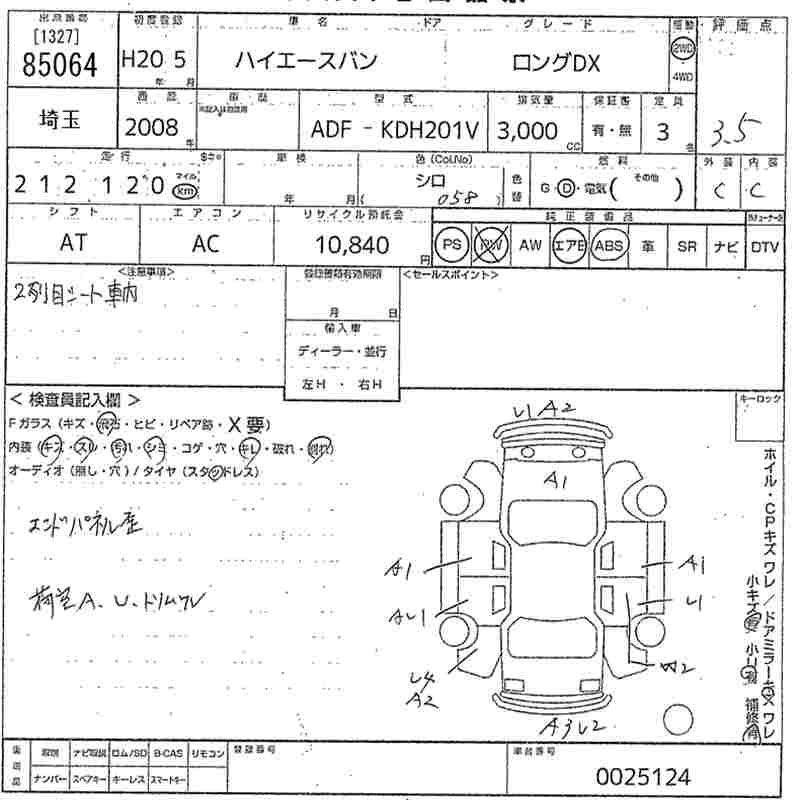 出品番号 初度登録 車名 ドア グレード 駆動 評価点
[1327]
85064 H20 5 年 月 ハイエースバン ロングDX 2WD 4WD
商品 車歴 型式 排気量 保証書 定員
埼玉 2008 年 ADF - KDH201V 3,000 CC 有・無 3 名 3.5
走行 車検 色(Col.No) 燃料 外装 内装
212120 マイル km 年 月 シロ 058 色替 G・D・電気( その他 ) C C
シフト エアコン リサイクル預託金 純正装備品
AT AC 10,840 円 PS PW AW エアB ABS 革 SR ナビ DTV
<注意事項> 登録書類有効期限 <セールスポイント>
2列目シート車内
月 日
輸入車
ディーラー・並行
左H ・ 右H
< 検査員記入欄 > キーロック
Fガラス(キズ・飛石・ヒビ・リペア跡・X要)
内装(キズ・スレ・汚れ・シミ・コゲ・穴・キレ・破れ・割れ)
オーディオ(無し・穴)/タイヤ(スタッドレス)
エンドパネル歪
荷室A、U、トリムワレ
U1 A2
A1
A1 A1
AU1 U1
U4 A2 W2
A3 U2
ホイル・CPキズワレ/ドアミラーキズXワレ
補修
登録番号 車台番号
取説 ナビ取説 ロム/SD B-CAS リモコン
後送品
ナンバー スペアキー キーレス スマートキー
0025124